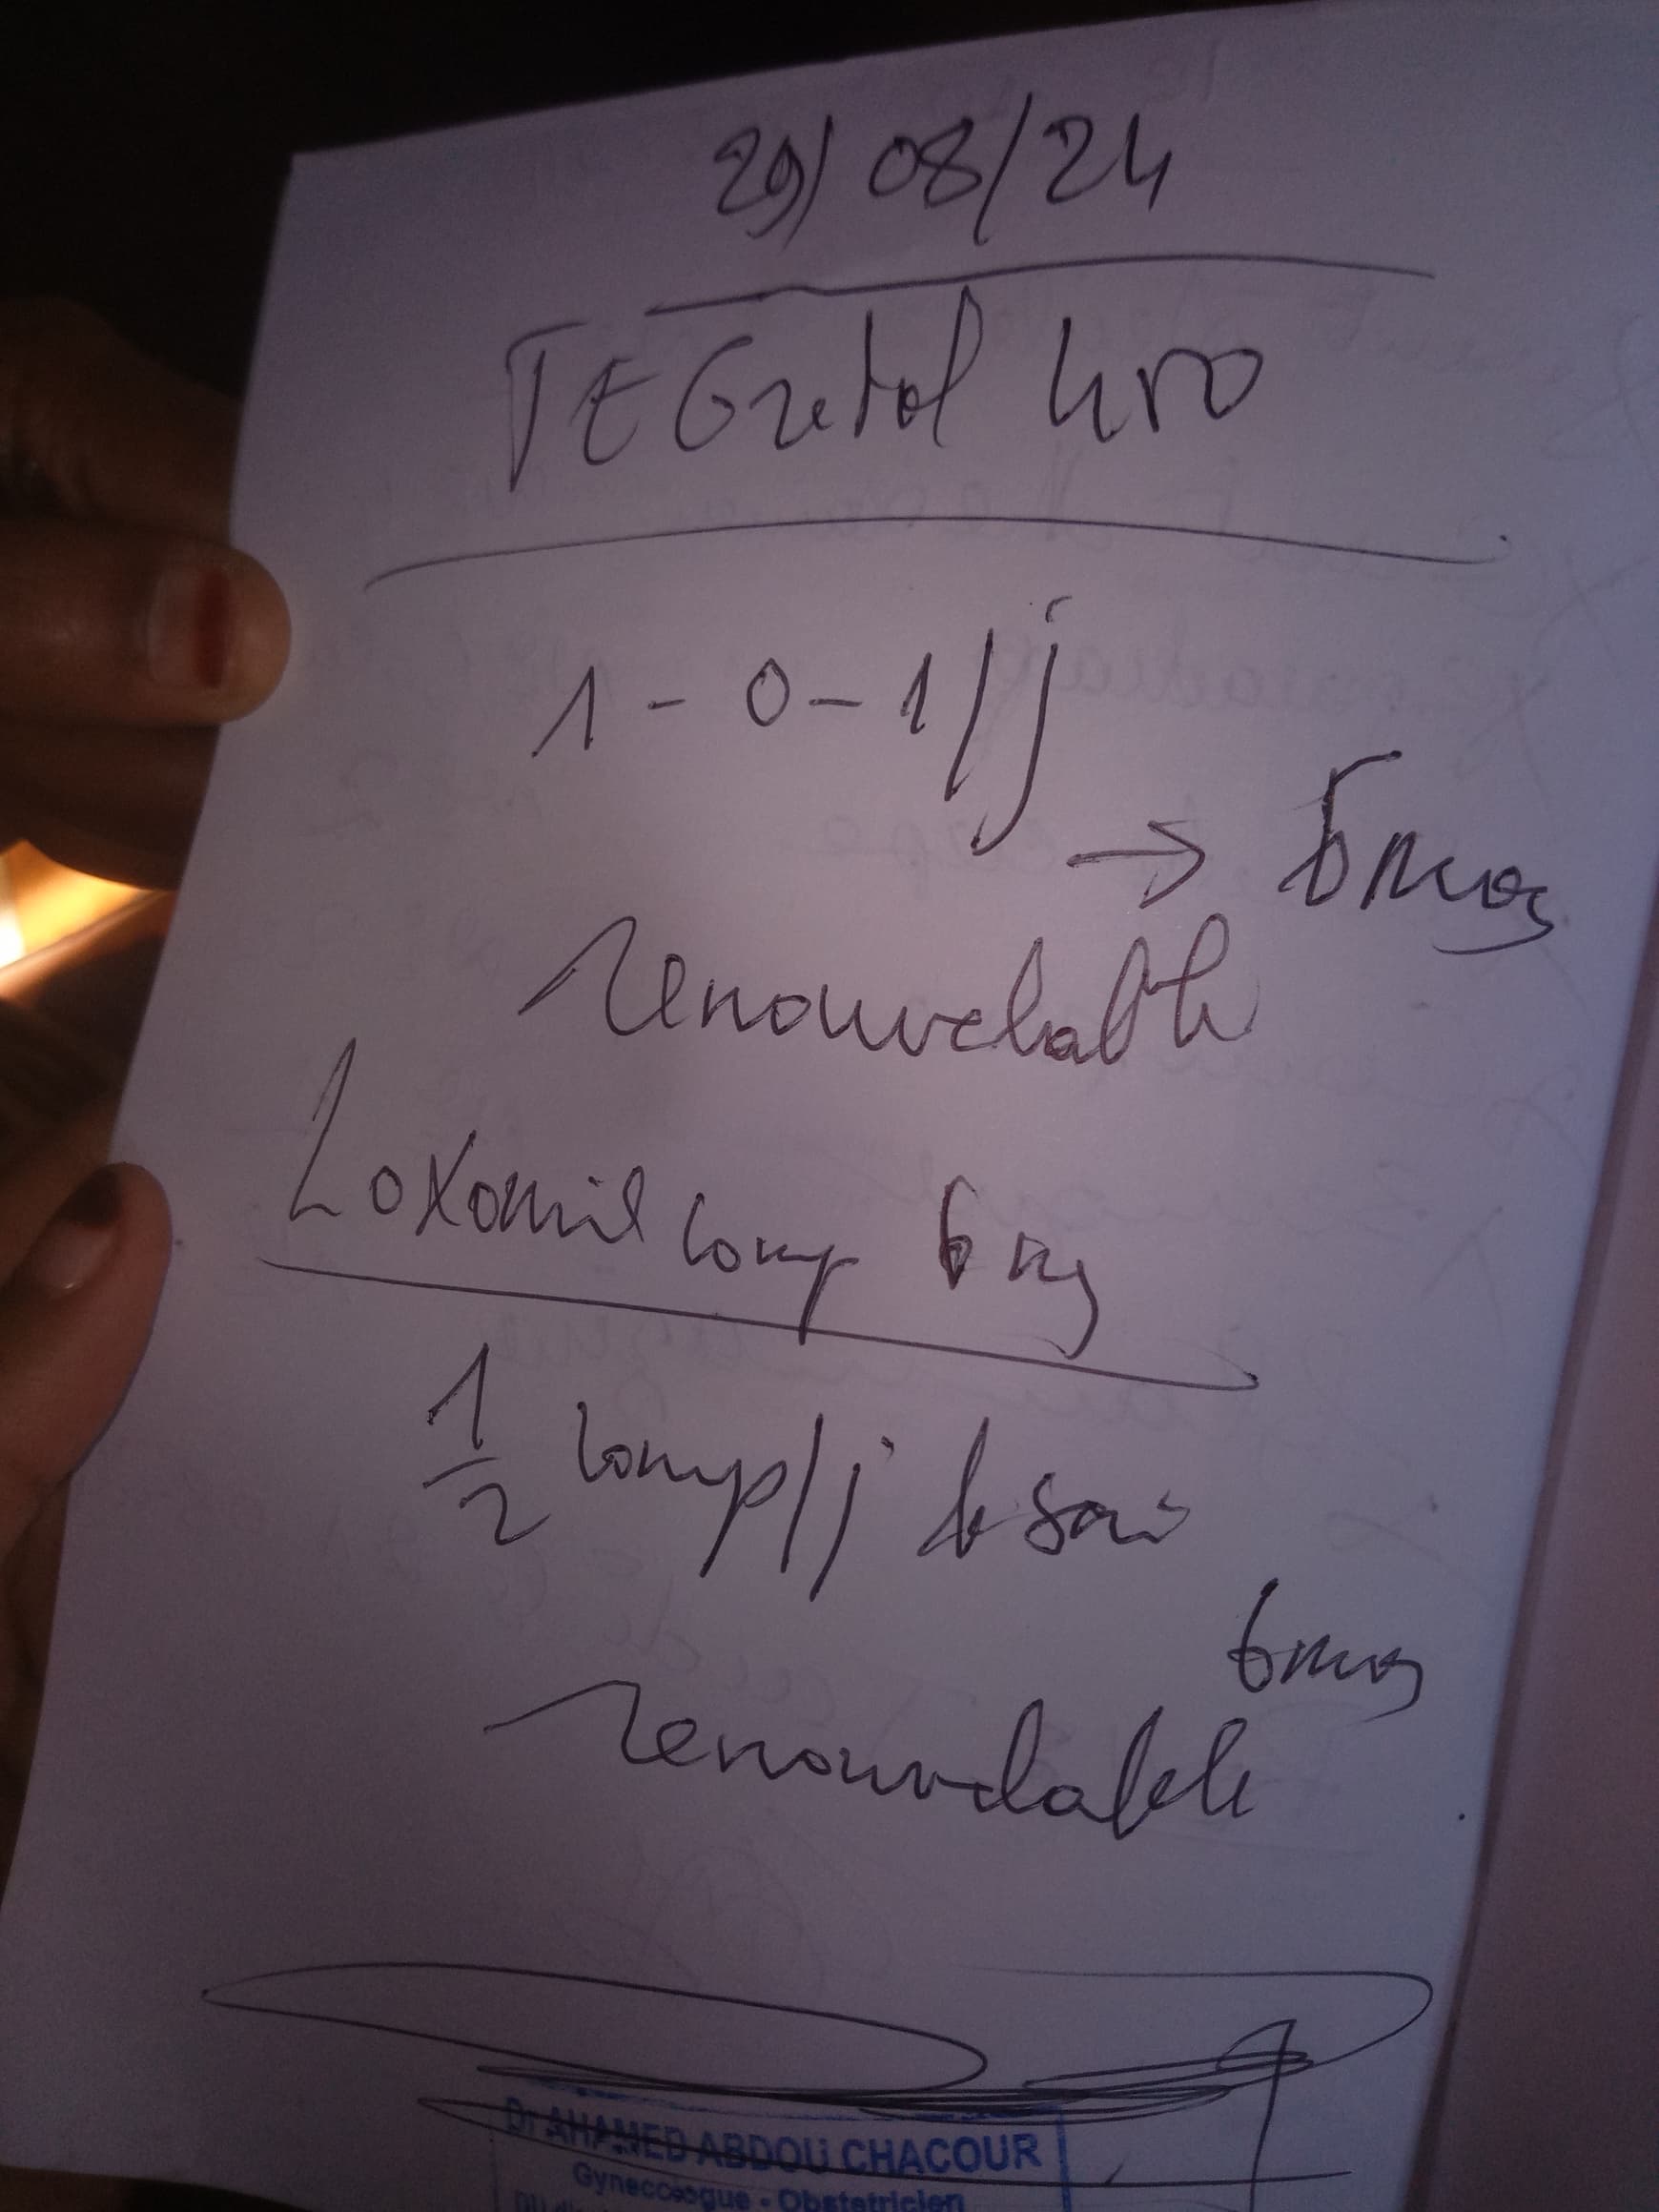 29/08/24
TEGretol 400
1 - 0 - 1 / j
→ 6 mois
renouvelable
Loxomil comp 6 mg
1/2 comp / j le soir
6 mois
renouvelable
Dr AHAMED ABDOU CHACOUR
Gynecologue - Obstetricien